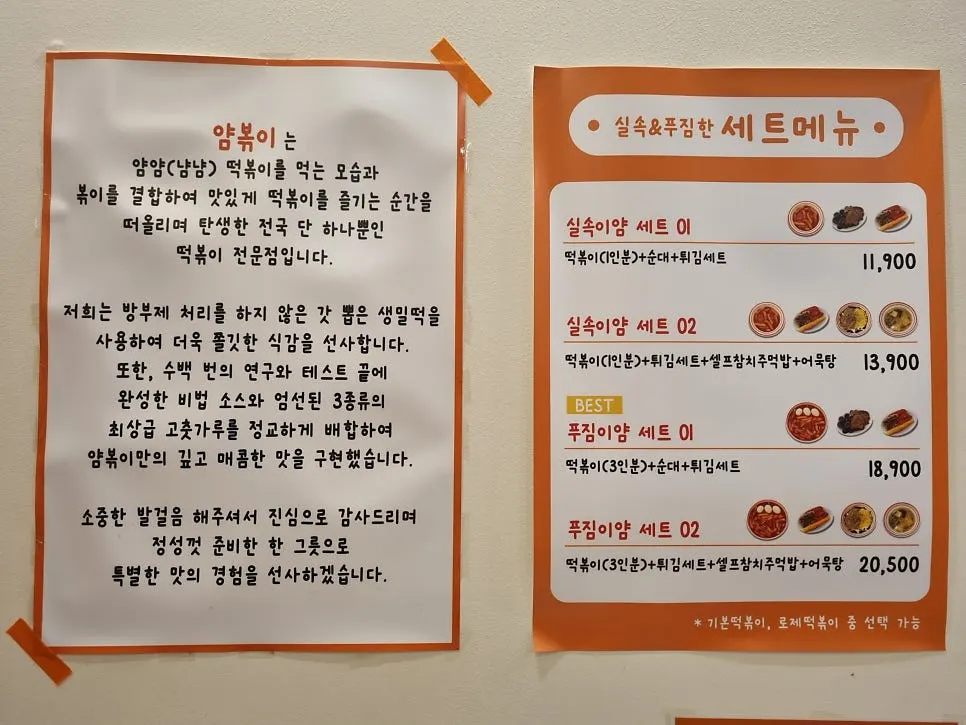 얌볶이 는
얌얌(냠냠) 떡볶이를 먹는 모습과
볶이를 결합하여 맛있게 떡볶이를 즐기는 순간을
떠올리며 탄생한 전국 단 하나뿐인
떡볶이 전문점입니다.
저희는 방부제 처리를 하지 않은 갓 뽑은 생밀떡을
사용하여 더욱 쫄깃한 식감을 선사합니다.
또한, 수백 번의 연구와 테스트 끝에
완성한 비법 소스와 엄선된 3종류의
최상급 고춧가루를 정교하게 배합하여
얌볶이만의 깊고 매콤한 맛을 구현했습니다.
소중한 발걸음 해주셔서 진심으로 감사드리며
정성껏 준비한 한 그릇으로
특별한 맛의 경험을 선사하겠습니다.
실속&푸짐한 세트메뉴
실속이얌 세트 01
떡볶이(1인분)+순대+튀김세트 11,900
실속이얌 세트 02
떡볶이(1인분)+튀김세트+셀프참치주먹밥+어묵탕 13,900
BEST
푸짐이얌 세트 01
떡볶이(3인분)+순대+튀김세트 18,900
푸짐이얌 세트 02
떡볶이(3인분)+튀김세트+셀프참치주먹밥+어묵탕 20,500
* 기본떡볶이, 로제떡볶이 중 선택 가능